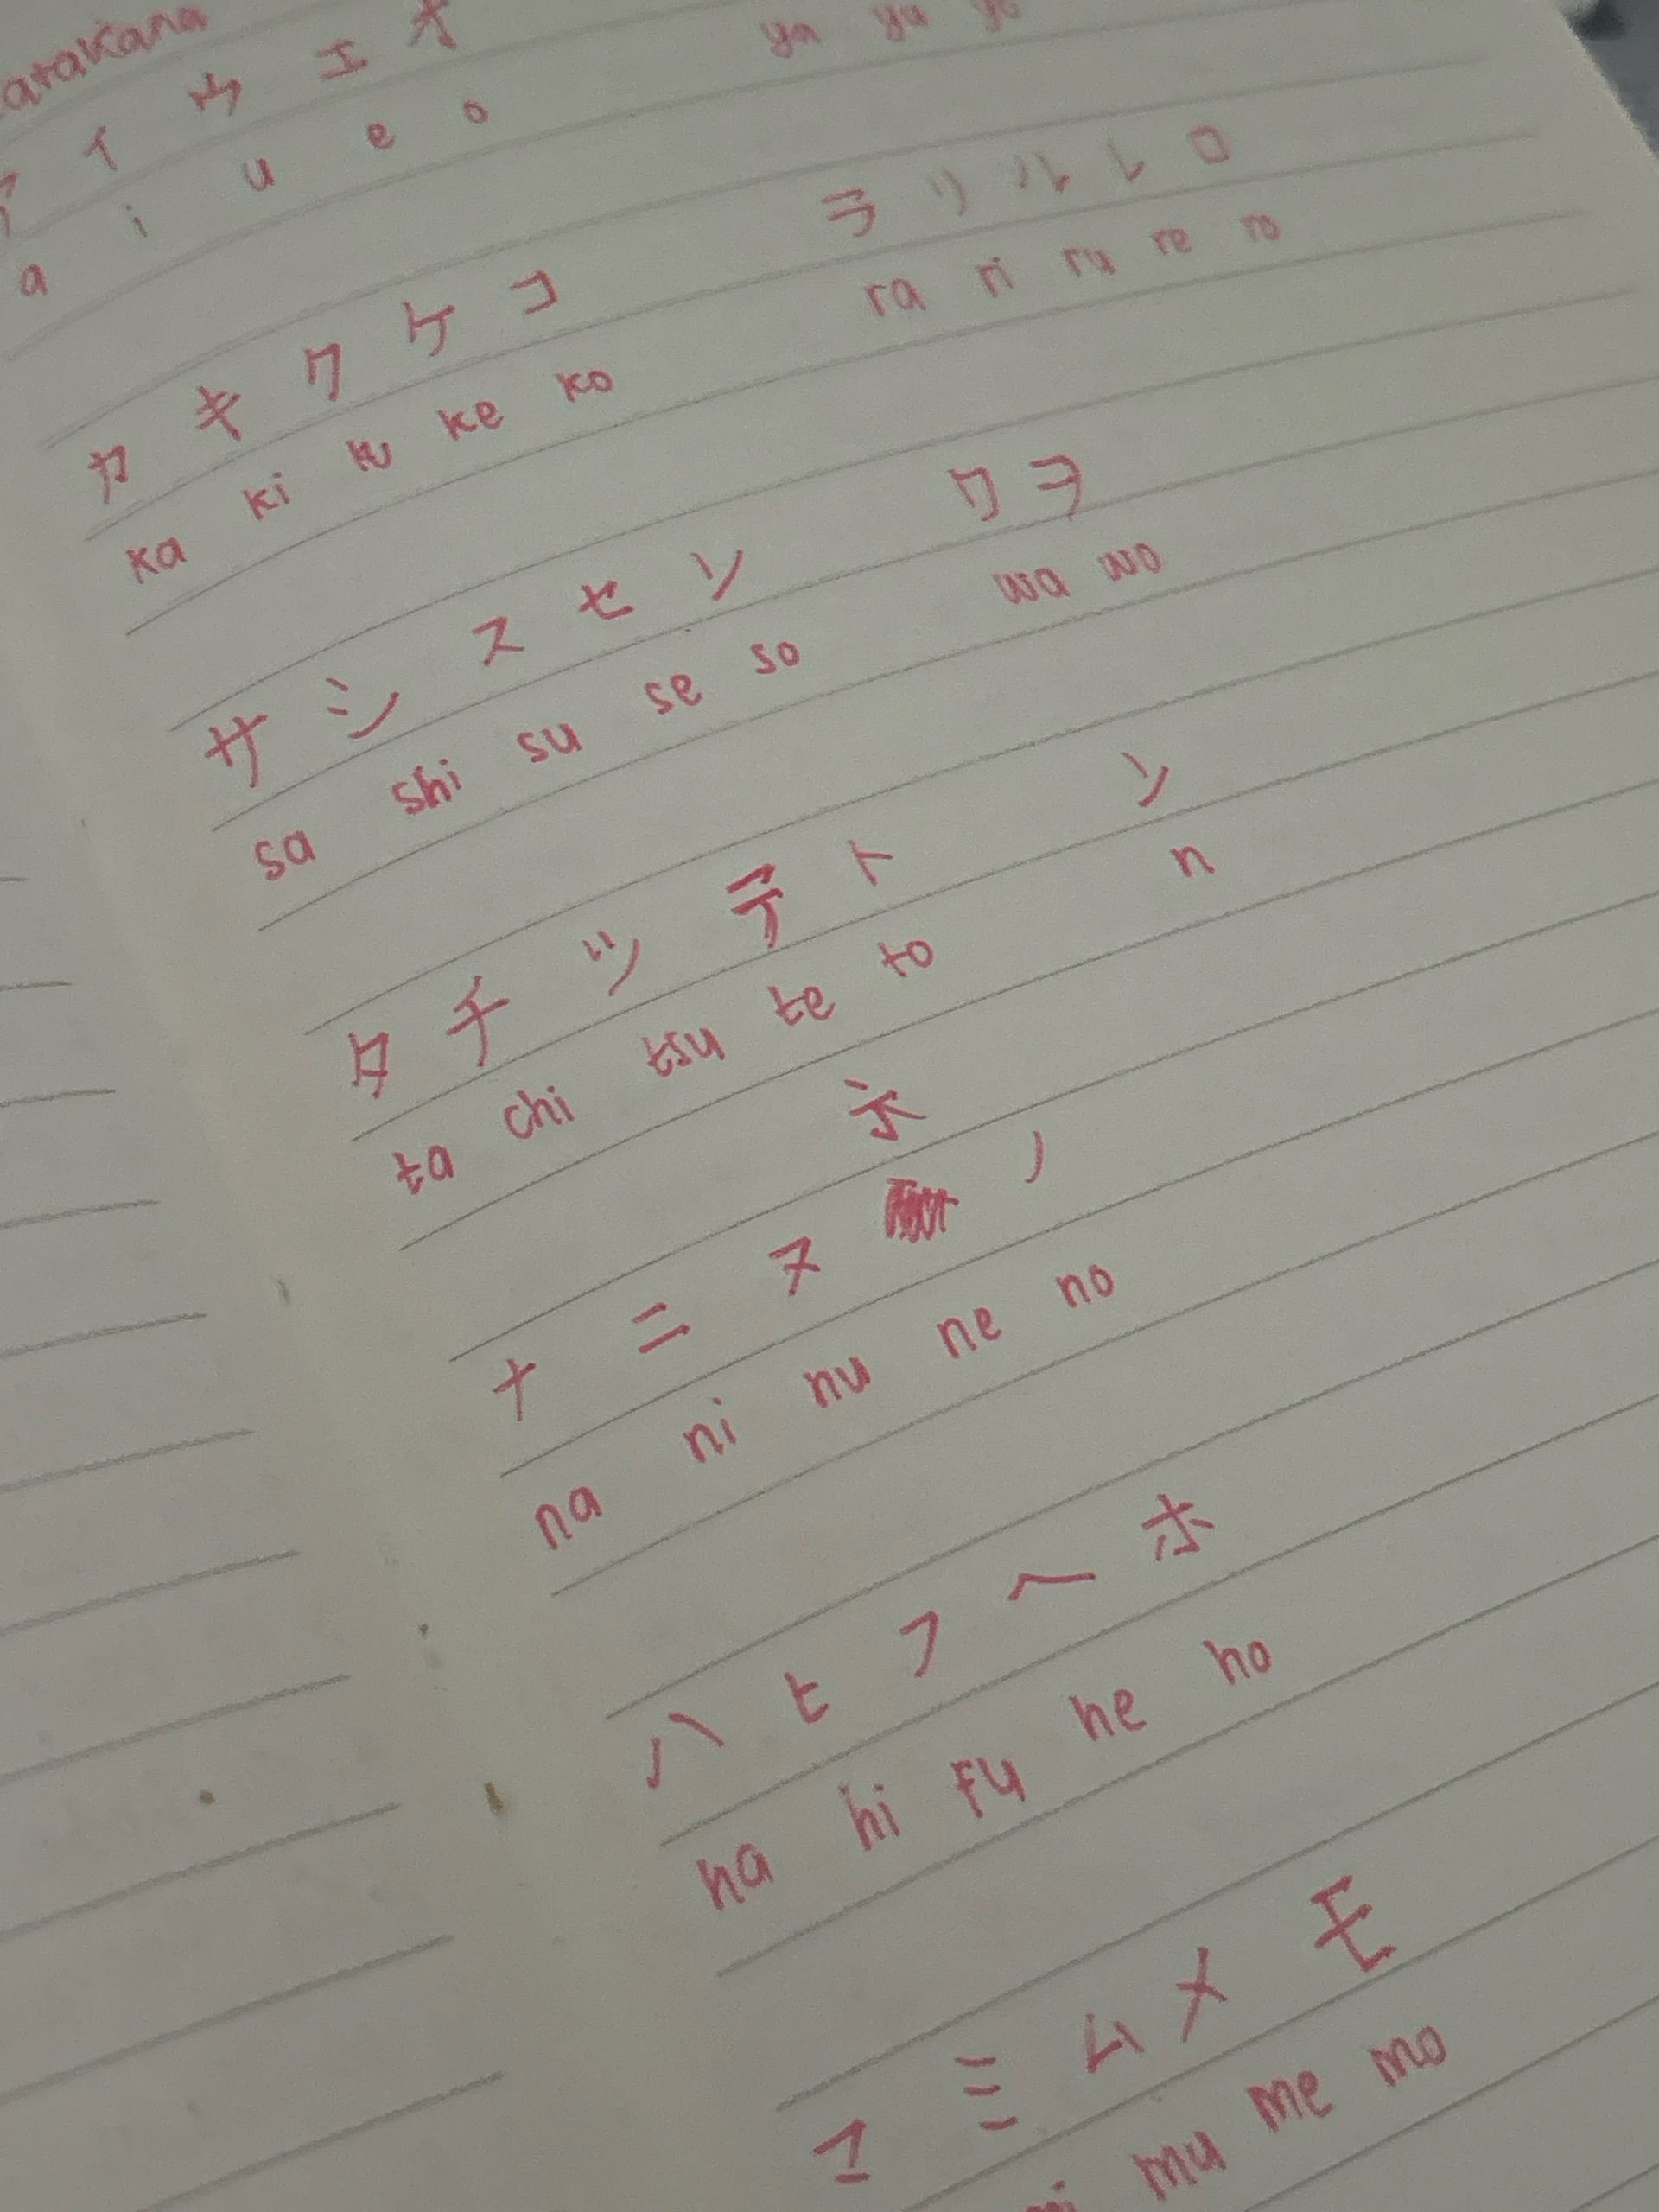 atakana
ア イ ウ エ オ
a i u e o
カ キ ク ケ コ
ka ki ku ke ko
サ シ ス セ ソ
sa shi su se so
タ チ ツ テ ト
ta chi tsu te to
ネ
ナ ニ ヌ ノ
na ni nu ne no
ハ ヒ フ ヘ ホ
ha hi fu he ho
マ ミ ム メ モ
mu me mo
ya yu yo
ラ リ ル レ ロ
ra ri ru re ro
ワ ヲ
wa wo
ン
n